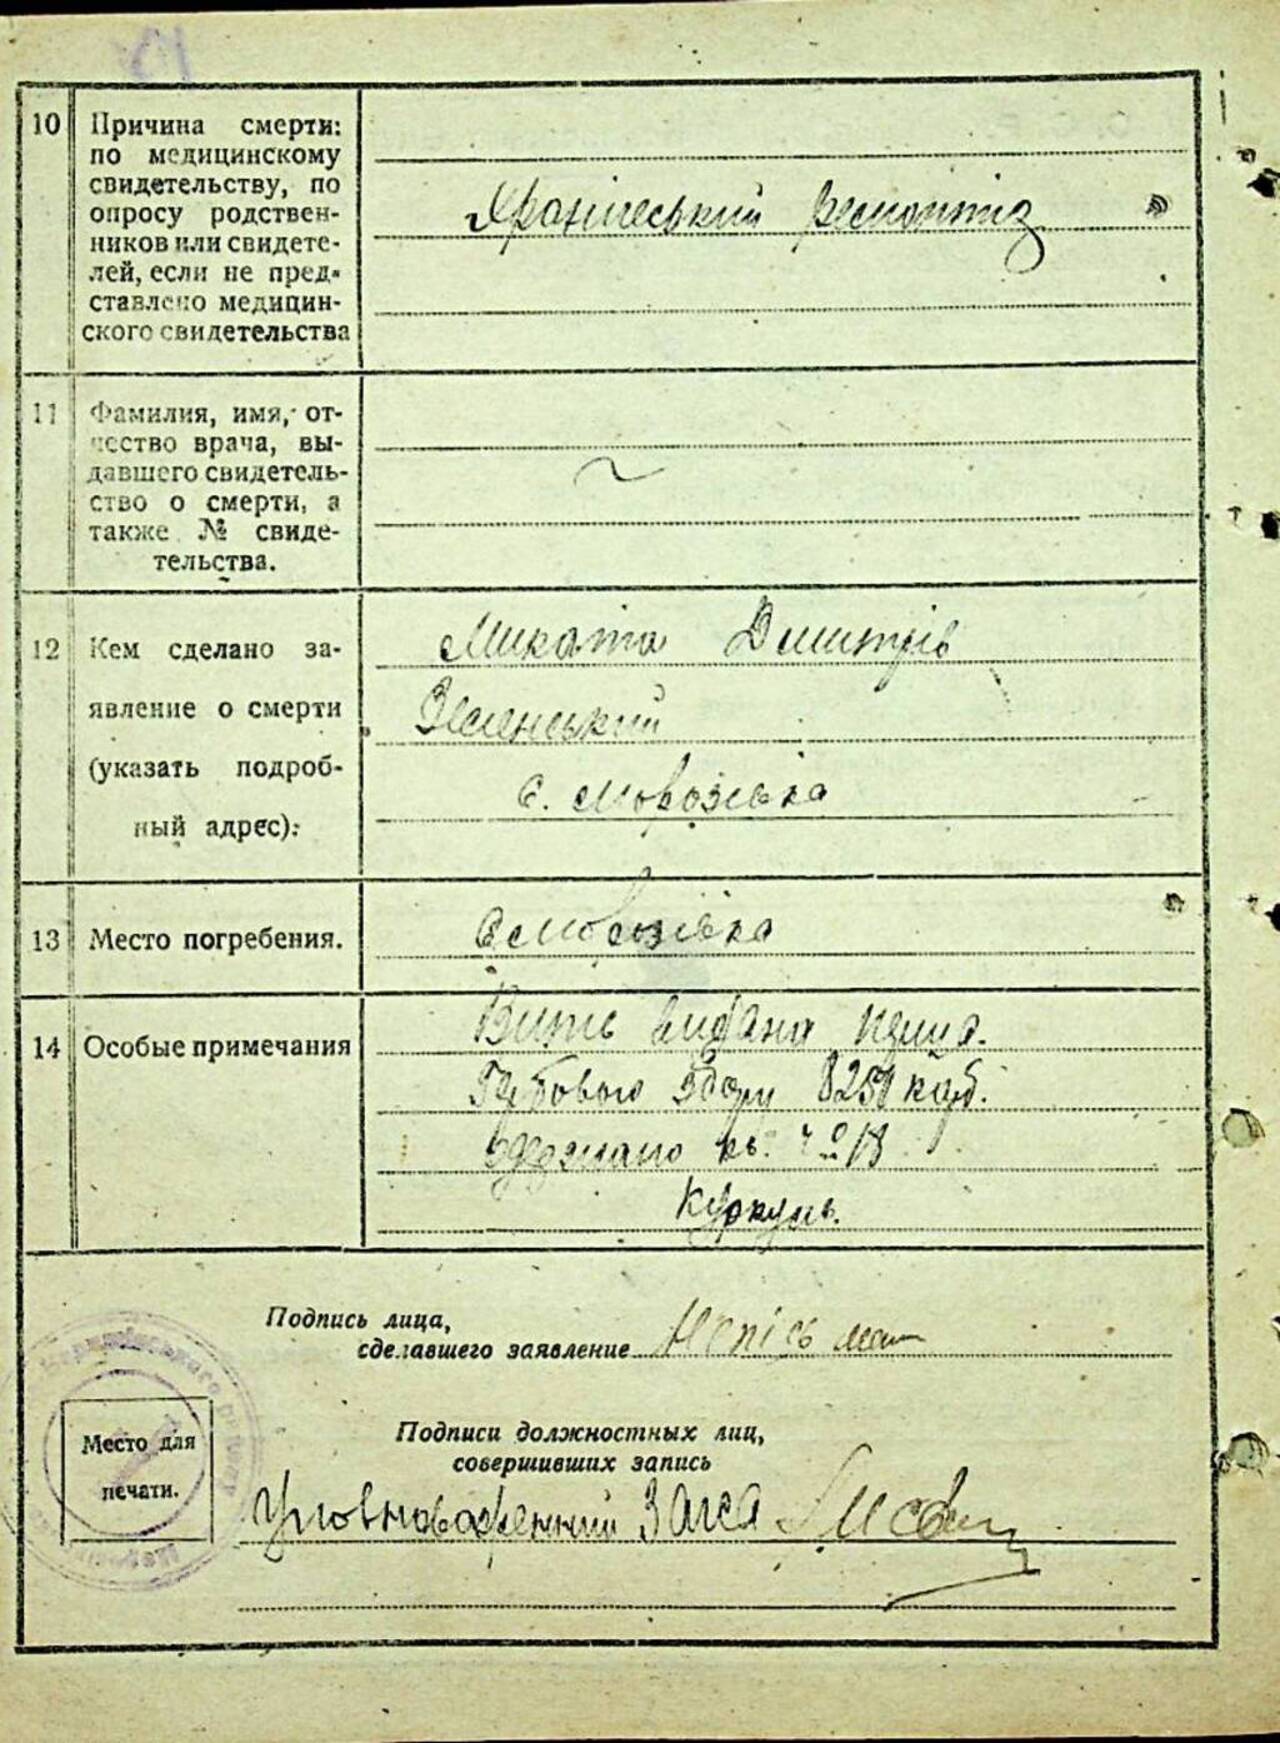 10
Причина смерти:
по медицинскому
свидетельству, по
опросу родствен-
ников или свидете-
лей, если не пред-
ставлено медицин-
ского свидетельства
Хронічеський ревматиз
11
Фамилия, имя, от-
чество врача, вы-
давшего свидетель-
ство о смерти, а
также № свиде-
тельства.
12
Кем сделано за-
явление о смерти
(указать подроб-
ный адрес):
Микита Дмитрів
Зеленський
с. Морозівка
13
Место погребения.
с Морозівка
14
Особые примечания
видана
збору 8250 карб.
Подпись лица,
сделавшего заявление Непісьмен
Место для
печати.
Подписи должностных лиц,
совершивших запись
Уповноваженний Загса